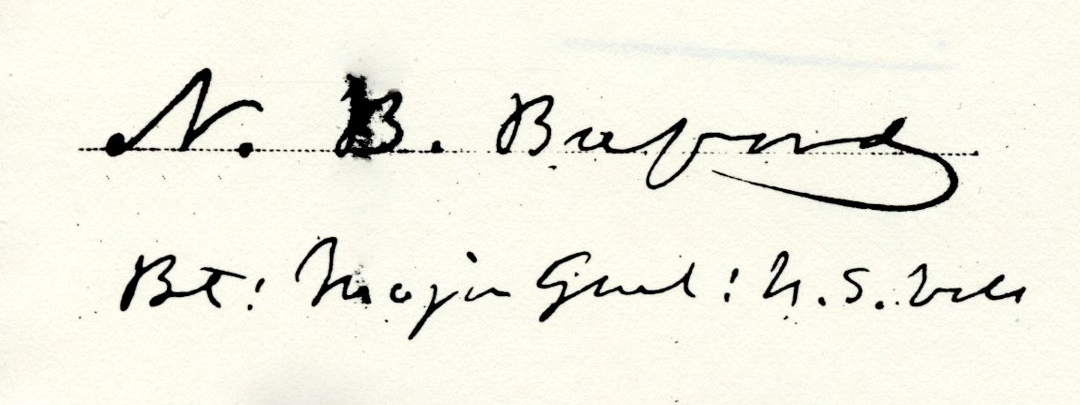 N. B. Buford
Bt: Major Genl: U.S. Vols